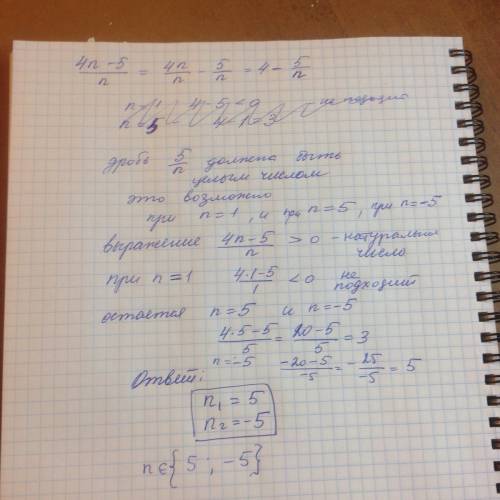 (4n-5)/n = 4n/n - 5/n = 4 - 5/n
n=1 4-5<0 не подходит
n=5 4-1=3
дробь 5/n должна быть
целым числом
это возможно
при n=1, и при n=5, при n=-5
выражение (4n-5)/n > 0 - натуральн
число
при n=1 (4·1-5)/1 < 0 не
подходит
остается n=5 и n=-5
(4·5-5)/5 = (20-5)/5 = 3
n=-5 (-20-5)/-5 = -25/-5 = 5
Ответ:
n₁ = 5
n₂ = -5
n∈{5; -5}